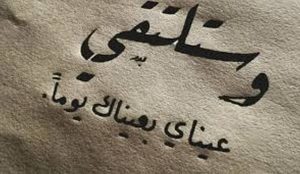 وستلتقي
عيناي بعيناك يوماً.